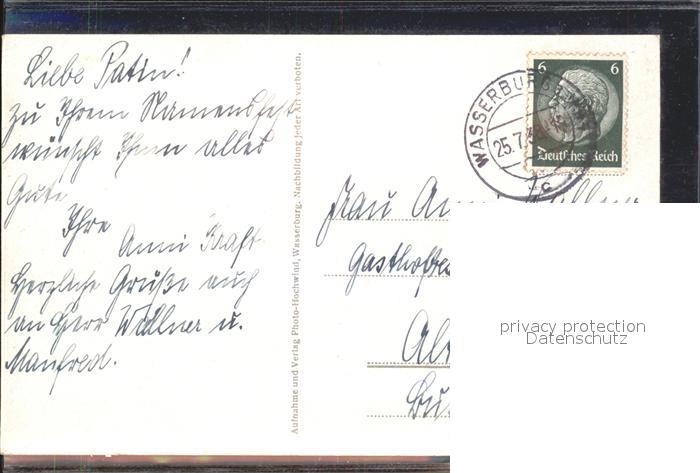 Liebe Patin!
Zu Ihrem Namensfest
wünscht Ihnen alles
Gute
Ihre
Anni Kraft
Herzliche Grüße auch
an Herr Wallner u.
Manfred.
Aufnahme und Verlag Photo-Hochwind, Wasserburg. Nachbildung jeder Art verboten.
WASSERBURG
25.7.
1c
6 6
Deutsches Reich
Frau
privacy protection
Datenschutz